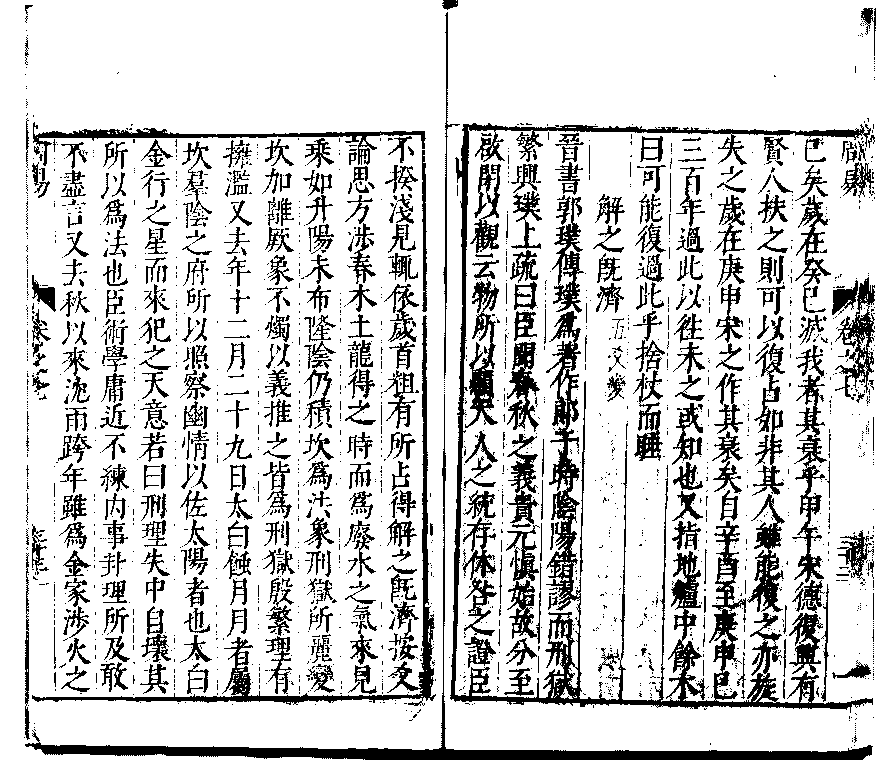 巳矣歲在癸巳滅我者其衰乎甲午宋德復興有
賢人扶之則可以復占如非其人雖能復之亦旋
失之歲在庚申宋之作其衰矣自辛酉至庚申巳
三百年過此以徃未之或知也又指地爐中餘木
曰可能復過此乎捨杖而睡
解之旣濟 五爻變
晉書郭璞傳璞爲著作郎于時陰陽錯謬而刑獄
繁興璞上疏曰臣聞春秋之義貴元愼始故分至
啟閉以觀云物所以顯天人之統存休咎之證臣
不揆淺見輒依歲首粗有所占得解之旣濟按爻
論思方渉春木王龍得之時而爲廢水之氣來見
乘加升陽未布隆陰仍積坎爲法象刑獄所麗變
坎加離厥象不燭以義推之皆爲刑獄殷繁理有
擁濫又去年十二月二十九日太白蝕月月者屬
坎羣陰之府所以照察幽情以佐太陽者也太白
金行之星而來犯之天意若曰刑理失中自壞其
所以爲法也臣術學庸近不練内事卦理所及敢
不盡言又去秋以來沈雨跨年雖爲金家渉火之